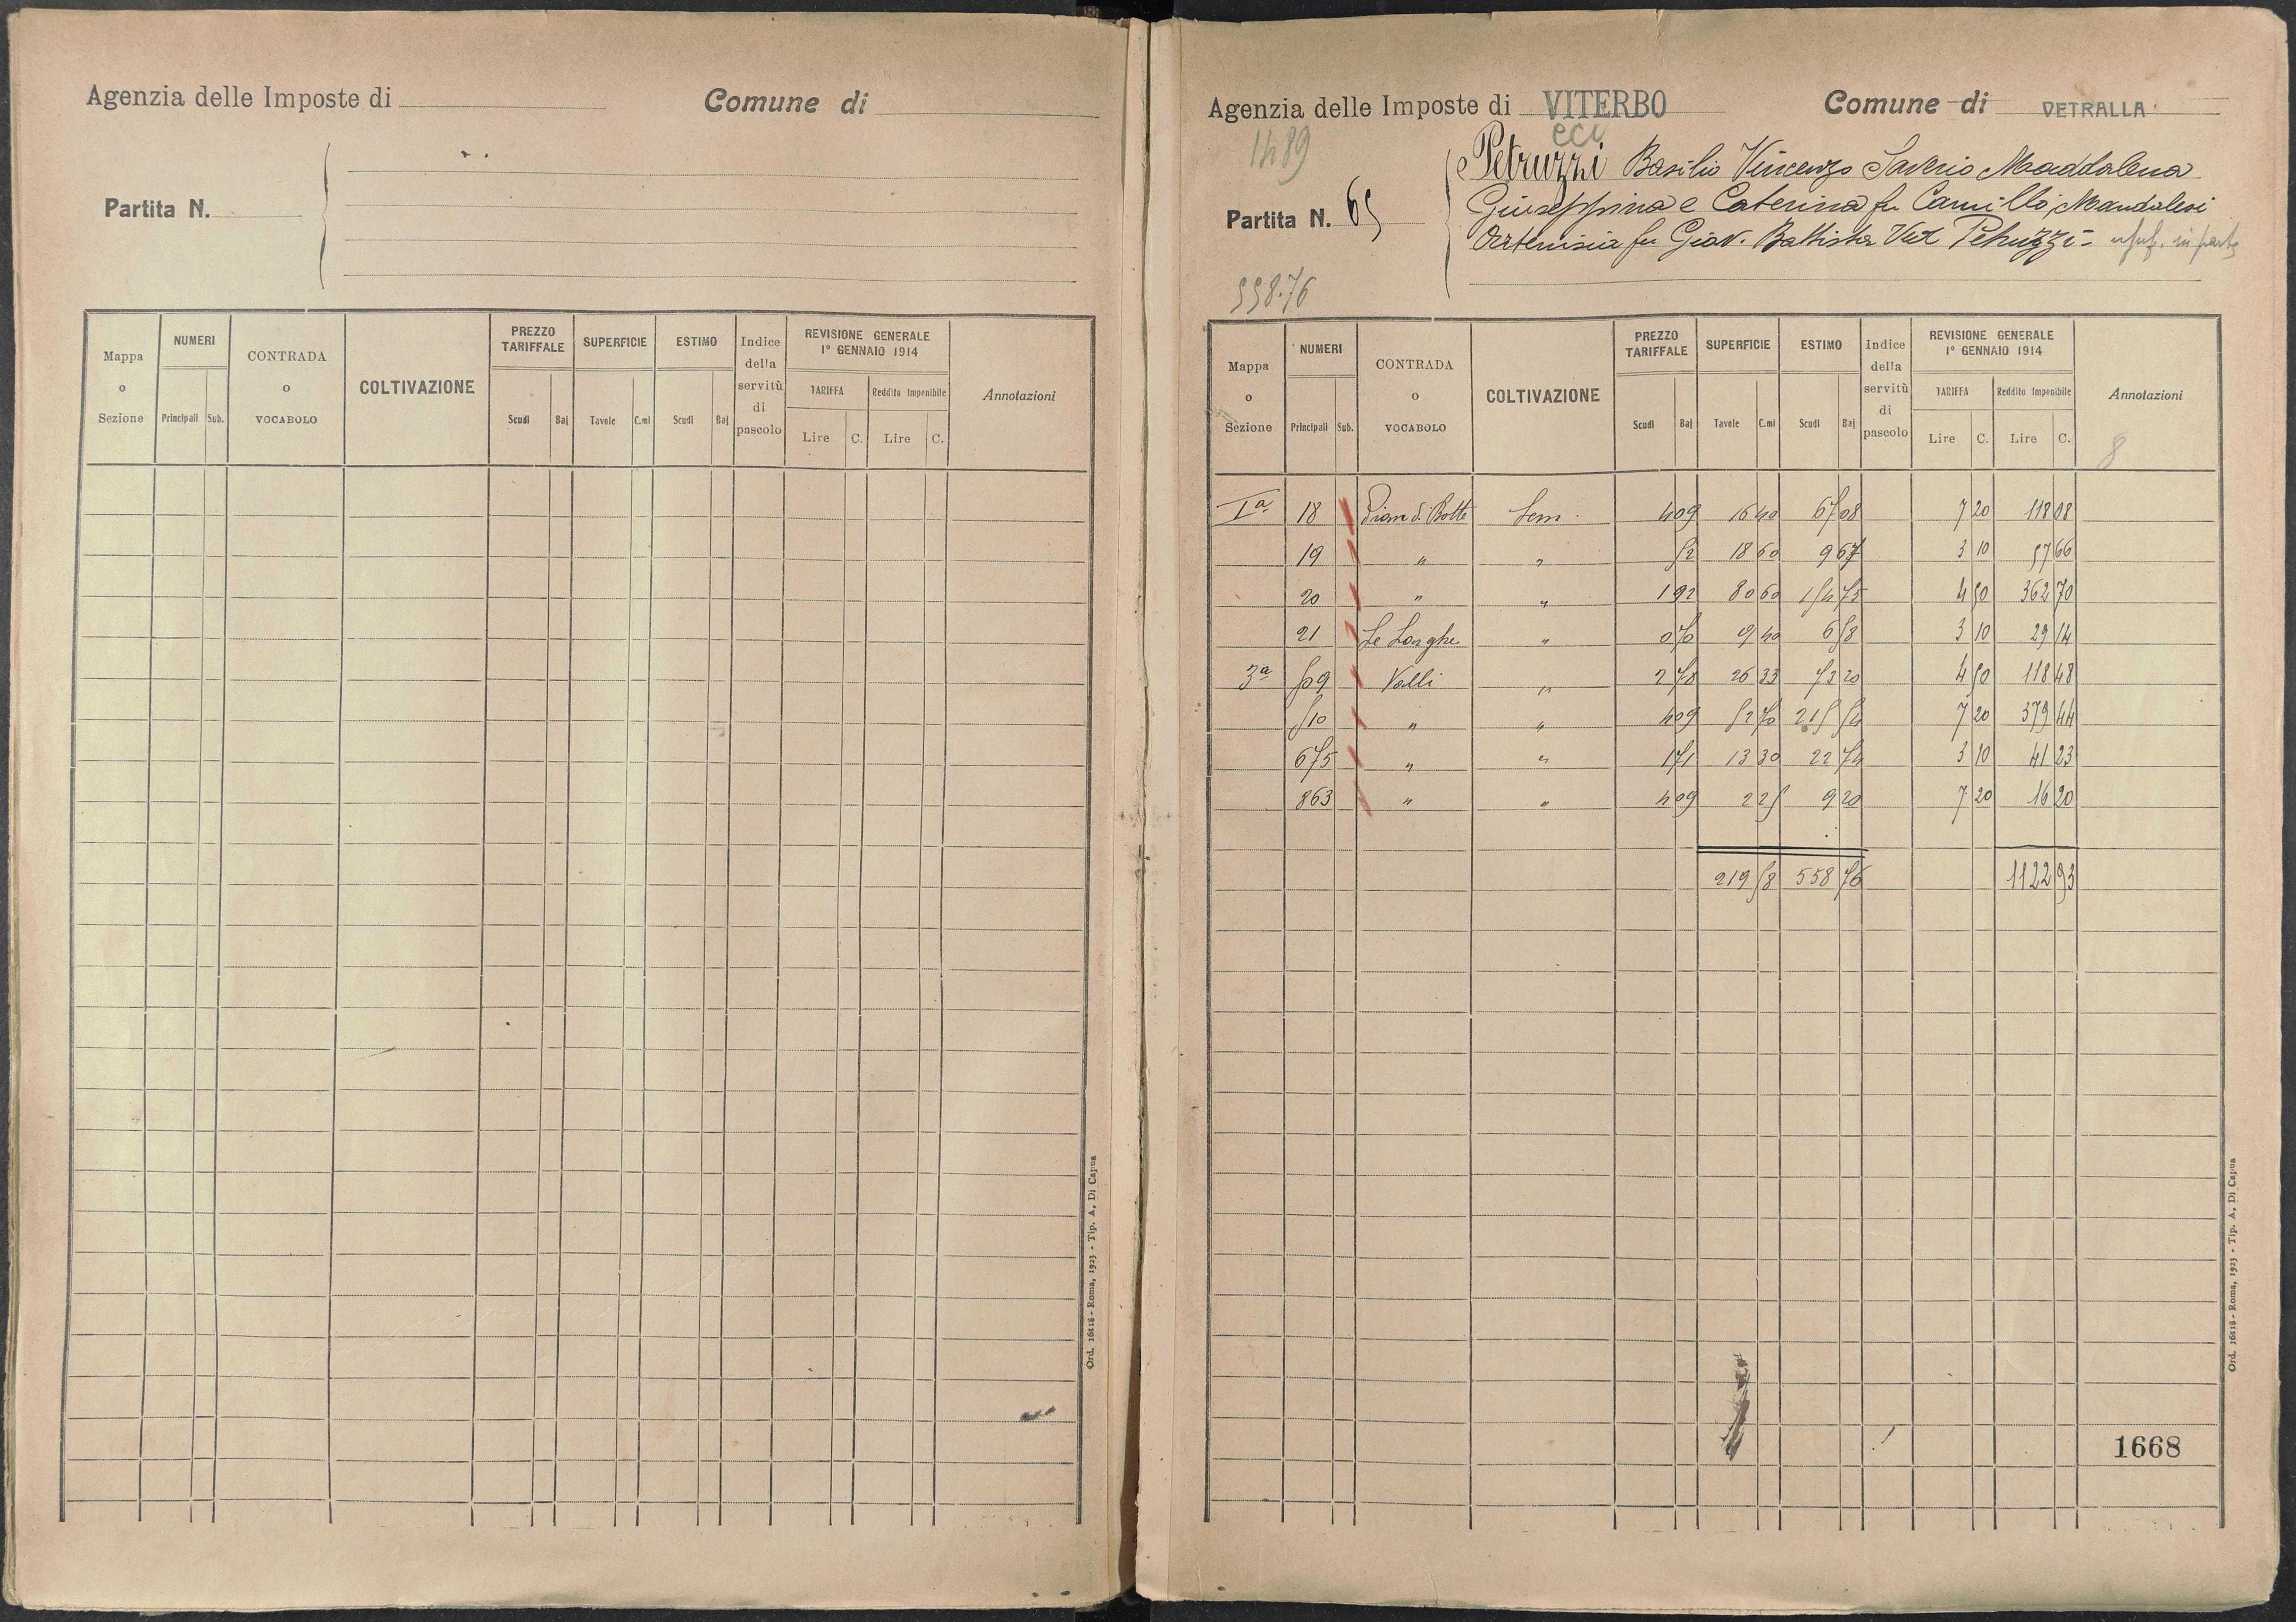 Agenzia delle Imposte di
Comune di
Partita N.
Mappa o Sezione
NUMERI
Principali Sub.
CONTRADA o VOCABOLO
COLTIVAZIONE
PREZZO TARIFFALE
Scudi Baj
SUPERFICIE
Tavole C.mi
ESTIMO
Scudi Baj
Indice della servitù di pascolo
REVISIONE GENERALE
1° GENNAIO 1914
TARIFFA Reddito Imponibile
Lire C. Lire C.
Annotazioni
Ord. 16118 - Roma, 1923 - Tip. A. Di Capua
Agenzia delle Imposte di VITERBO
Comune di VETRALLA
1489
Partita N. 65
Petruzzi Basilio Vincenzo Saverio Maddalena
Giuseppina e Caterina fu Camillo, Mandolesi
Artemisia fu Giov. Battista Ved Petruzzi - usuf. in parte
558.76
Mappa o Sezione
NUMERI
Principali Sub.
CONTRADA o VOCABOLO
COLTIVAZIONE
PREZZO TARIFFALE
Scudi Baj
SUPERFICIE
Tavole C.mi
ESTIMO
Scudi Baj
Indice della servitù di pascolo
REVISIONE GENERALE
1° GENNAIO 1914
TARIFFA Reddito Imponibile
Lire C. Lire C.
Annotazioni
8
Iª 18 Pian di Botte Sem. 4 09 16 40 67 08 7 20 118 08
19 " " 52 18 60 9 67 3 10 57 66
20 " " 1 92 80 60 154 75 4 50 362 70
21 Le Longhe " 0 70 9 40 6 58 3 10 29 14
3ª 509 Valli " 2 78 26 33 73 20 4 50 118 48
510 " " 4 09 52 70 215 54 7 20 379 44
675 " " 1 71 13 30 22 74 3 10 41 23
863 " " 4 09 2 25 9 20 7 20 16 20
219 58 558 76 1122 93
1668
Ord. 16118 - Roma, 1923 - Tip. A. Di Capua